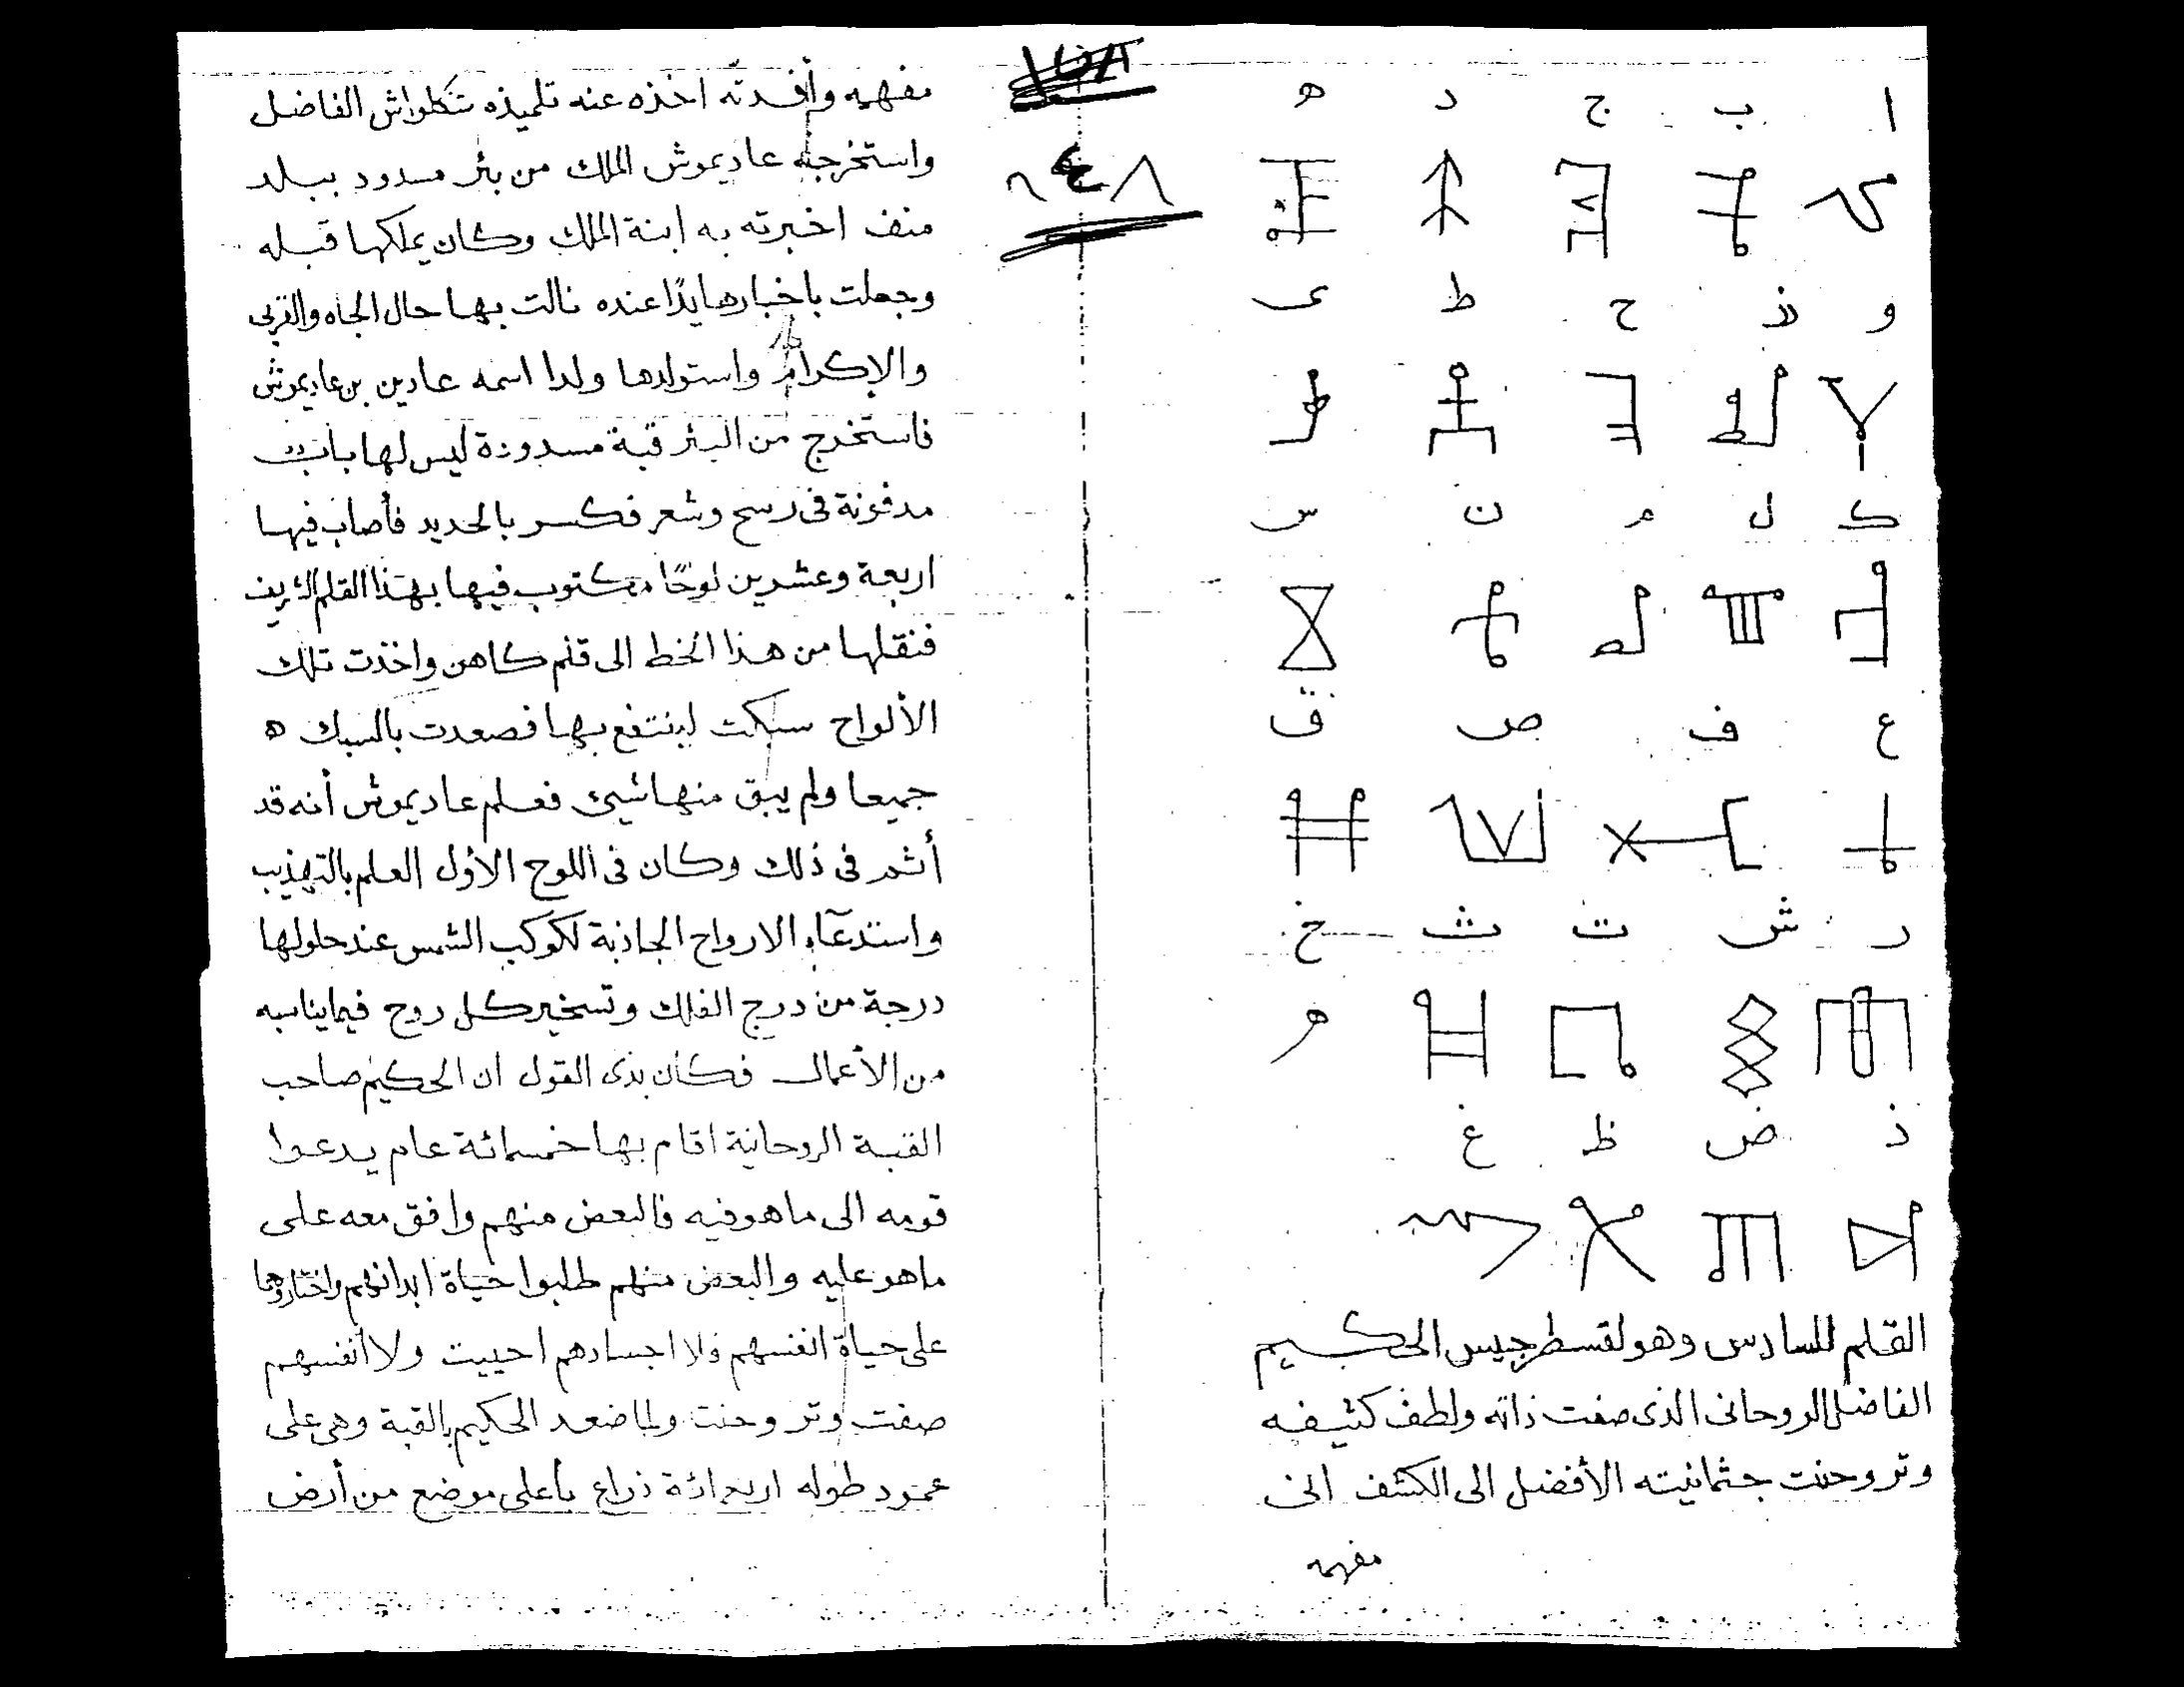 ا ب ج د ه
و ز ح ط ى
ك ل م ن س
ع ف ص ق
ر ش ت ث خ
ذ ض ظ غ
القلم السادس وهو لقسطرجيس الحكيم
الفاضل الروحانى الذى صفت ذاته ولطف كثيفه
وتروحنت جثمانيته الأفضل الى الكشف الى
مفهمه
مفهمه وأفدته اخذه عنه تلميذه تنكلواش الفاضل
واستخرجه عاديموش الملك من بئر مسدود ببلد
منف اخبرته به ابنة الملك وكان يملكها قبله
وجعلت باخبارها يدًا عنده نالت بها حال الجاه والقربى
والإكرام واستولدها ولدا اسمه عادين بن عاديموش
فاستخرج من البئر قبة مسدودة ليس لها باب
مدفونة فى وشعر فكسر بالحديد فأصاب فيها
اربعة وعشرين لوحًا مكتوب فيها بهذا القلم الشريف
فنقلها من هذا الخط الى قلم كاهن واخذت تلك
الألواح سبكت لينتفع بها فصعدت بالسبك ه
جميعا ولم يبق منها شيئ فعلم عاديموش أنه قد
أثم فى ذلك وكان فى اللوح الأول العلم بالتهذيب
واستدعآء الارواح الجاذبة لكوكب الشمس عند حلولها
درجة من درج الفلك وتسخير كل روح فيما يناسبه
من الأعمال فكان بذى القول ان الحكيم صاحب
القبة الروحانية اقام بها خمسمائة عام يدعوا
قومه الى ما هو فيه فالبعض منهم وافق معه على
ما هو عليه والبعض منهم طلبوا حياة ابدانهم واختاروها
على حياة انفسهم فلا اجسادهم احييت ولا أنفسهم
صفت وتروحنت ولما صعد الحكيم بالقبة وهى على
عمود طوله اربعمائة ذراع بأعلى موضع من أرض